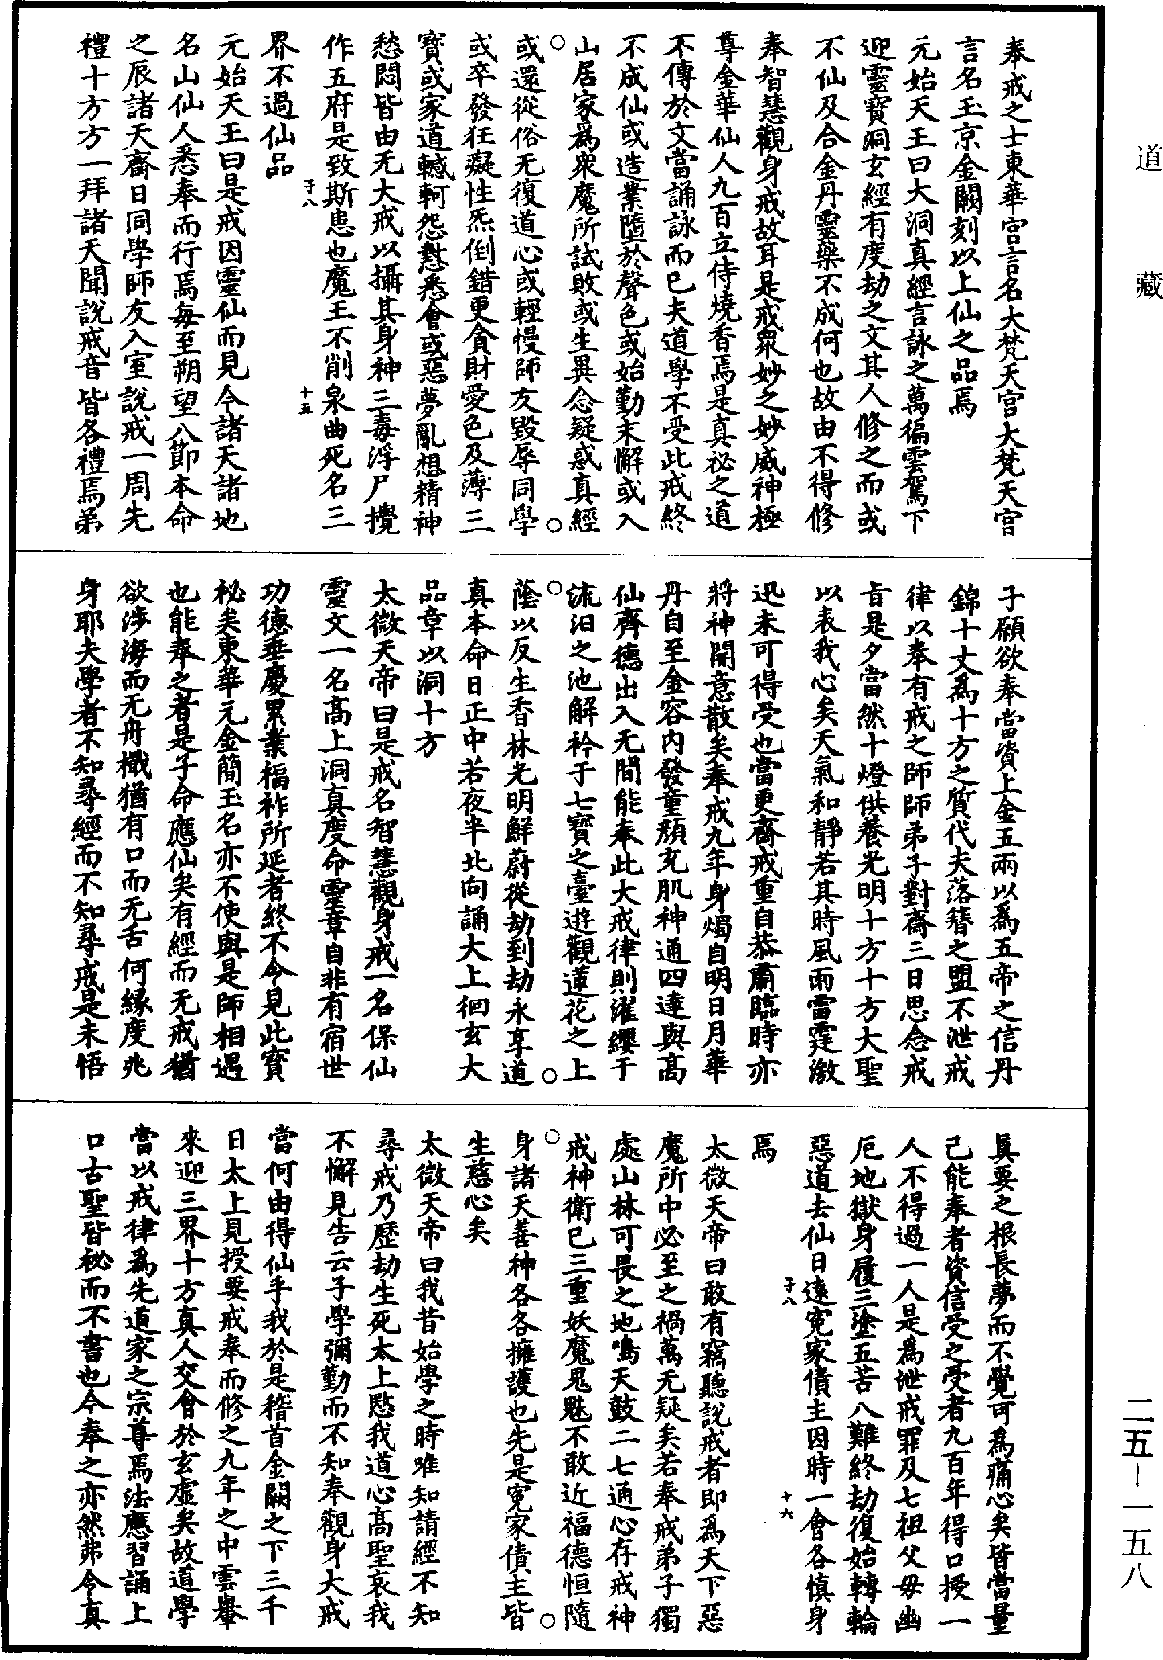 道藏
奉戒之士東華宮言名大梵天宮大梵天宮
言名玉京金闕刻以上仙之品焉
元始天王曰大洞真經言詠之萬徧雲駕下
迎靈寶洞玄經有度劫之文其人修之而或
不仙及合金丹靈藥不成何也故由不得修
奉智慧觀身戒故耳是戒眾妙之妙威神極
尊金華仙人九百立侍燒香焉是真祕之道
不傳於文當誦詠而已夫道學不受此戒終
不成仙或造業墮於聲色或始勤末懈或入
山居家為眾魔所試敗或生異念疑惑真經
或還從俗无復道心或輕慢師友毀辱同學
或卒發狂癡性炁倒錯更貪財愛色及薄三
寶或家道轗軻怨懟悉會或惡夢亂想精神
愁悶皆由无大戒以攝其身神三毒浮尸攪
作五府是致斯患也魔王不削泉曲死名三
界不過仙品
元始天王曰是戒因靈仙而見今諸天諸地
名山仙人悉奉而行焉每至朔望八節本命
之辰諸天齋日同學師友入室說戒一周先
禮十方方一拜諸天聞說戒音皆各禮焉弟
子八
十五
子願欲奉當資上金五兩以為五帝之信丹
錦十丈為十方之質代夫落簪之盟不泄戒
律以奉有戒之師師弟子對齋三日思念戒
旨是夕當然十燈供養光明十方十方大聖
以表我心矣天氣和靜若其時風雨雷霆激
迅未可得受也當更齋戒重自恭肅臨時亦
將神開意散矣奉戒九年身燭自明日月華
丹自至金容內發童顏充肌神通四達與高
仙齊德出入无間能奉此大戒律則濯纓于
流汨之池解衿于七寶之臺遊觀蓮花之上
蔭以反生香林光明鮮蔚從劫到劫永享道
真本命日正中若夜半北向誦大上徊玄大
品章以洞十方
太微天帝曰是戒名智慧觀身戒一名保仙
靈文一名高上洞真度命靈章自非有宿世
功德垂慶累業福祚所延者終不令見此寶
祕矣東華元金簡玉名亦不使與是師相遇
也能奉之者是子命應仙矣有經而无戒猶
欲涉海而无舟檝猶有口而无舌何緣度兆
身耶夫學者不知尋經而不知尋戒是未悟
真要之根長夢而不覺可為痛心矣皆當量
己能奉者資信受之受者九百年得口授一
人不得過一人是為泄戒罪及七祖父母幽
厄地獄身履三塗五苦八難終劫復始轉輪
惡道去仙日遠冤家債主因時一會各慎身
焉
子八
十六
太微天帝曰敢有竊聽說戒者即為天下惡
魔所中必至之禍萬无疑矣若奉戒弟子獨
處山林可畏之地鳴天鼓二七通心存戒神
戒神衛己三重妖魔鬼魅不敢近福德恒隨
身諸天善神各各擁護也先是冤家債主皆
生慈心矣
太微天帝曰我昔始學之時唯知請經不知
尋戒乃歷劫生死太上愍我道心高聖哀我
不懈見告云子學彌勤而不知奉觀身大戒
當何由得仙乎我於是稽首金闕之下三千
日太上見授要戒奉而修之九年之中雲轝
來迎三界十方真人交會於玄虛矣故道學
當以戒律為先道家之宗尊焉法應習誦上
口古聖皆祕而不書也今奉之亦然弗令真
二五－一五八